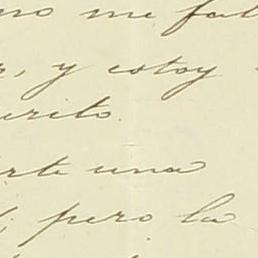 no me fal
, y estoy
erito.
rte una
; pero la